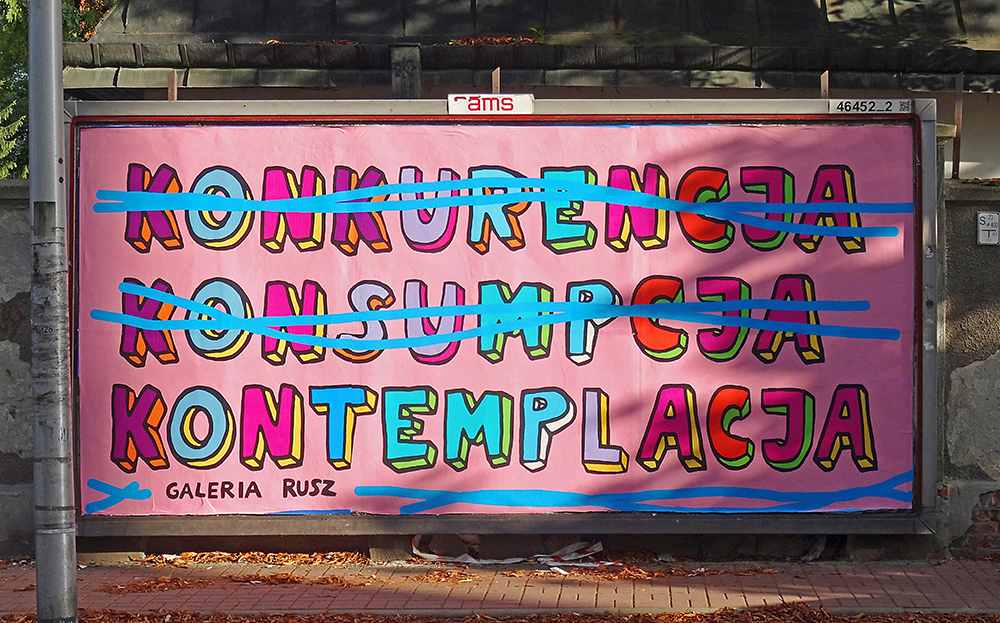 cams
46452_2
KONKURENCJA
KONSUMPCJA
KONTEMPLACJA
GALERIA RUSZ